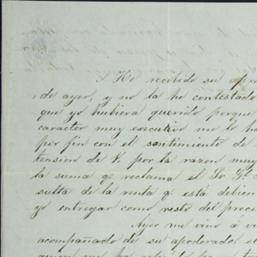 He recibido su apre
de ayer, y no la he contestado
que yo hubiera querido porque
caracter muy executivo me lo h
por fin con el sentimiento de
tension de V. por la razon muy
la suma q. reclama el Sr. G.
sulta de la renta q. está debien
yo entregar como resto del prec
Ayer me vino á v
acompañado de su apoderado, el